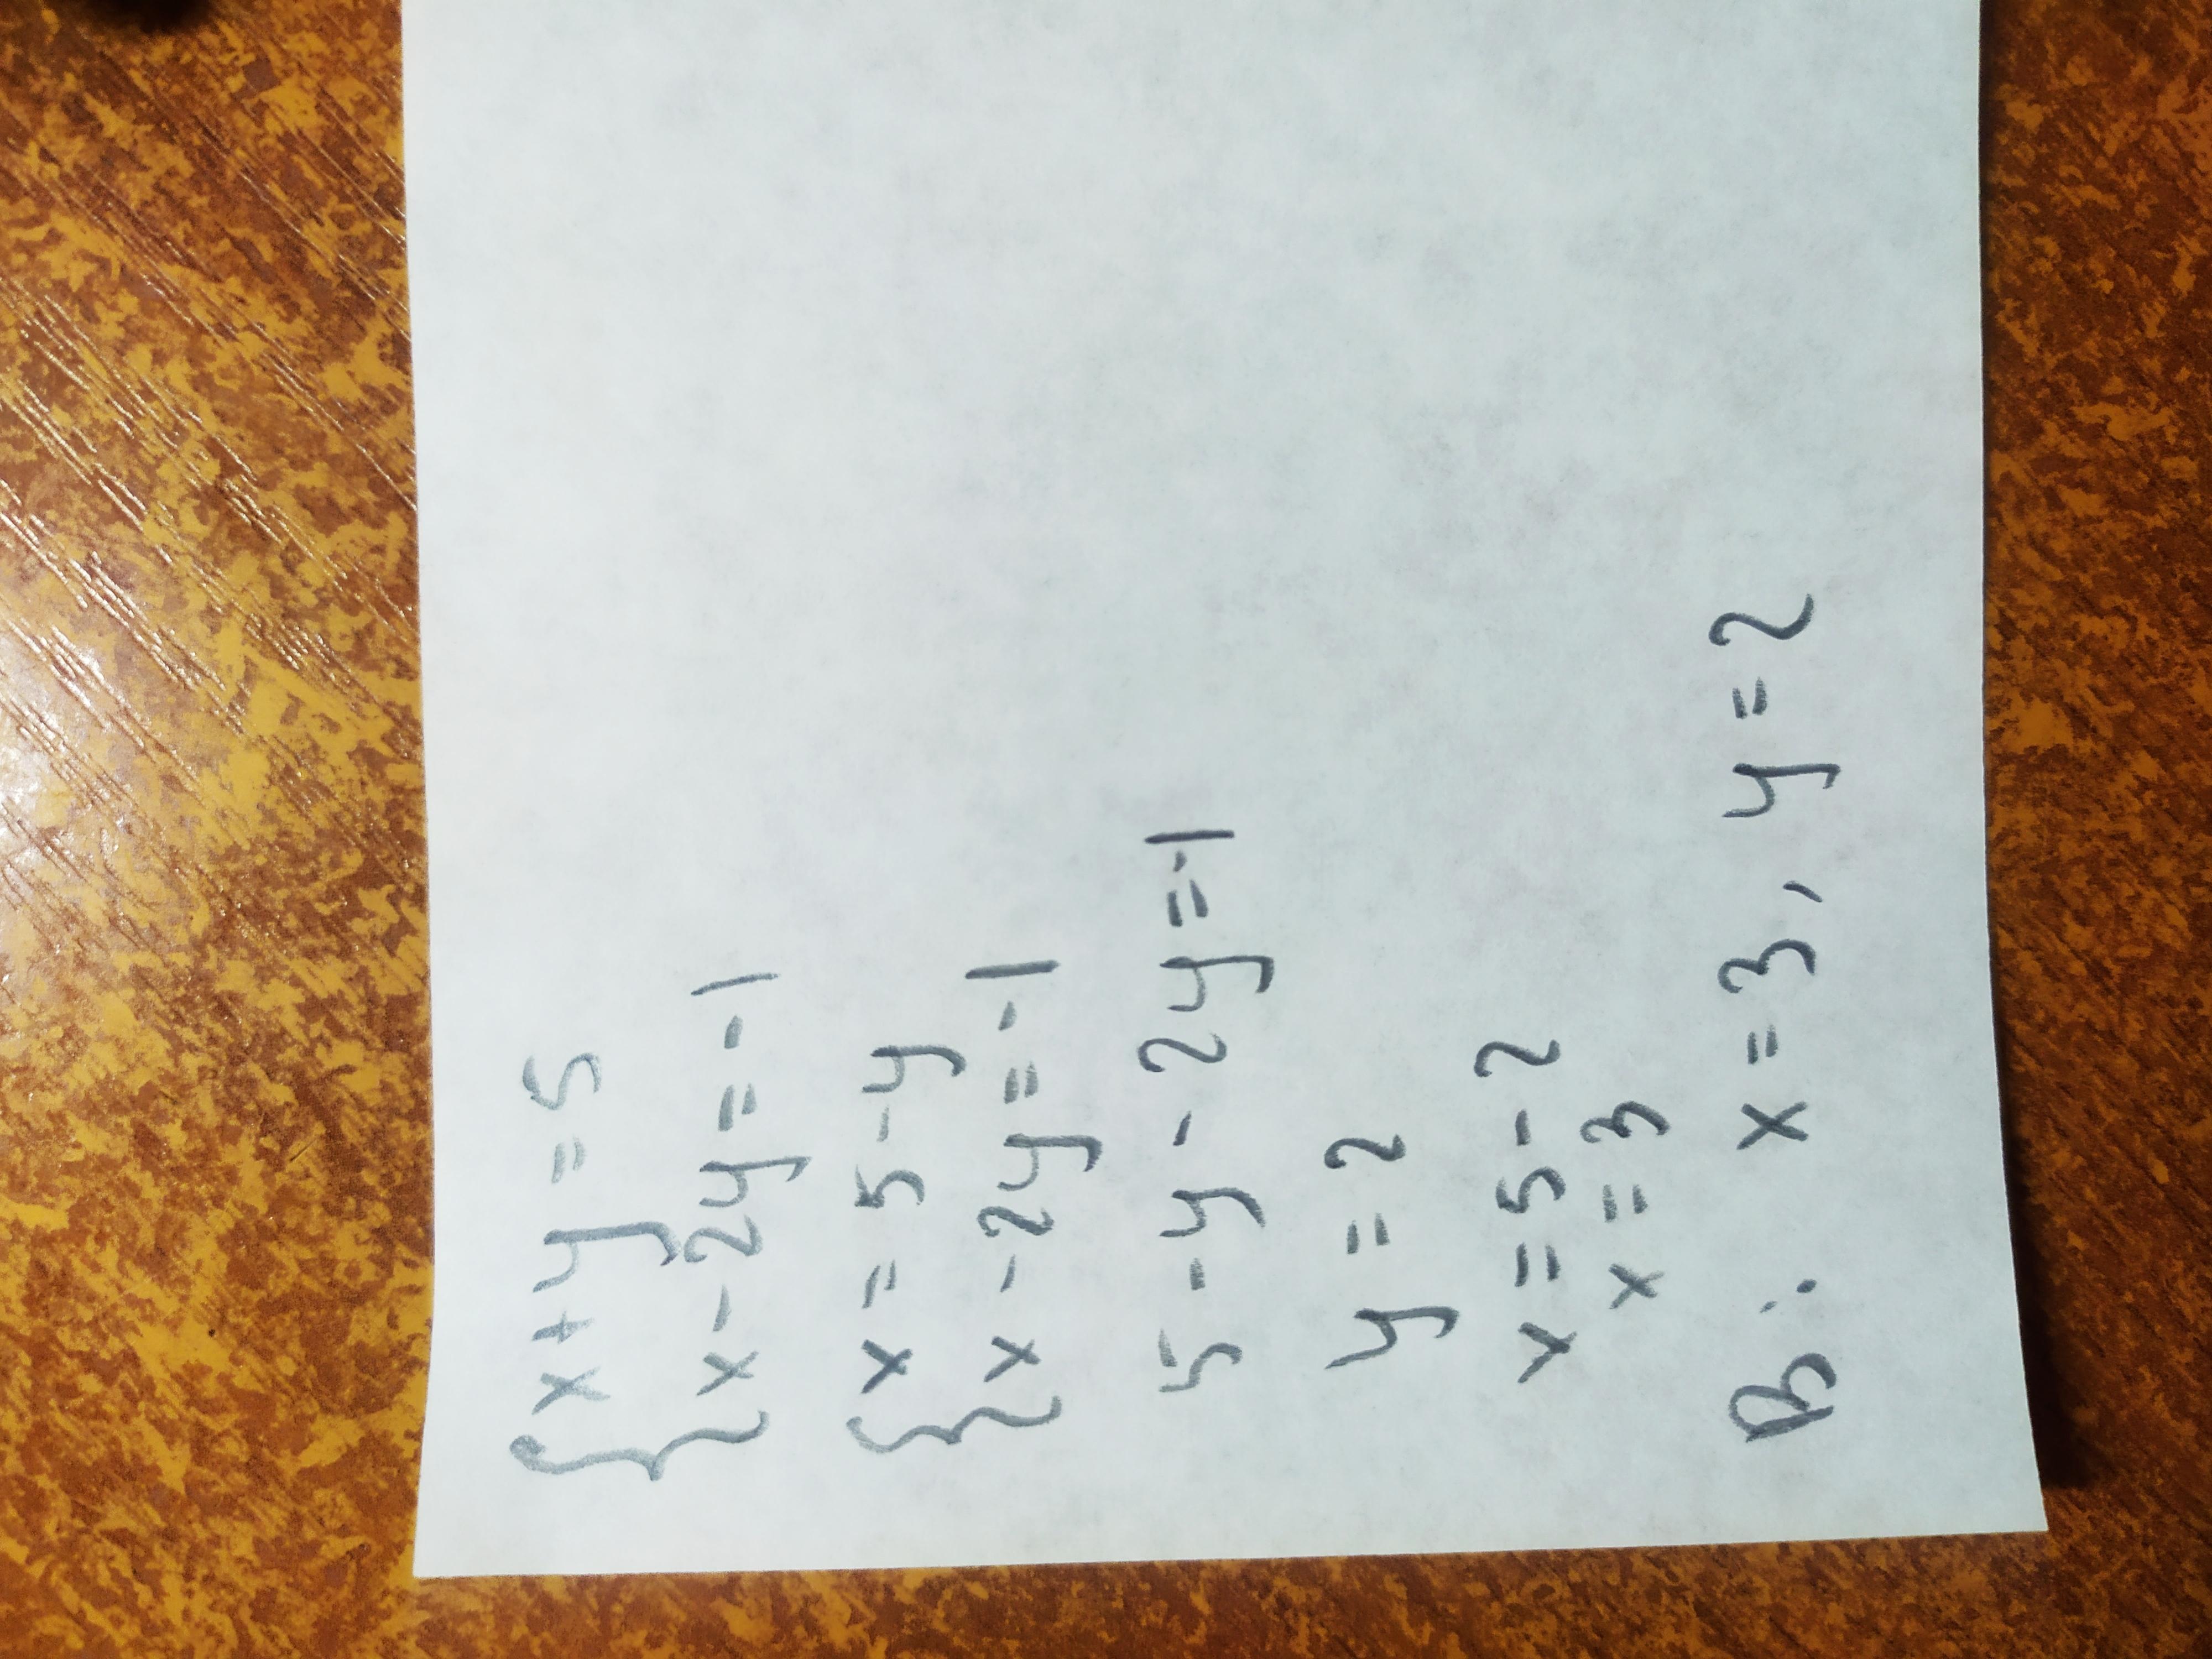 {x+y=5
{x-2y=-1
{x=5-y
{x-2y=-1
5-y-2y=-1
y=2
x=5-2
x=3
В: x=3, y=2